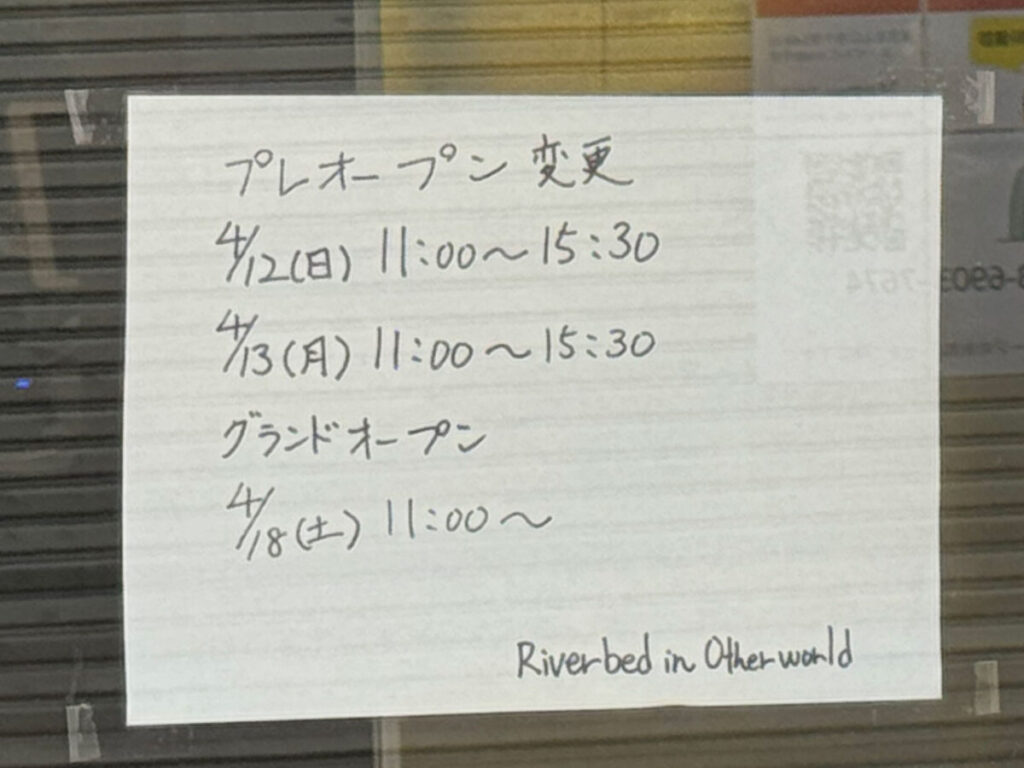 プレオープン 変更
4/12(日) 11:00～15:30
4/13(月) 11:00～15:30
グランドオープン
4/18(土) 11:00～
Riverbed in Otherworld